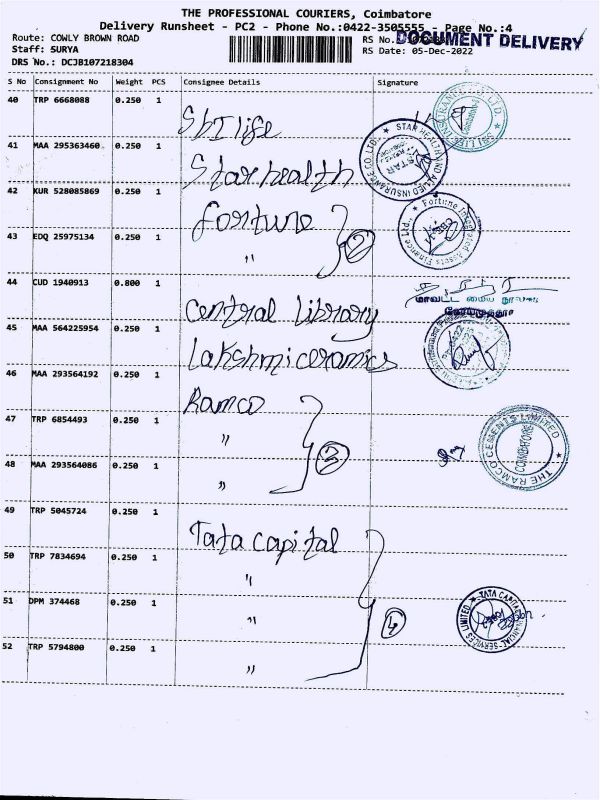 THE PROFESSIONAL COURIERS, Coimbatore
Delivery Runsheet - PC2 - Phone No.:0422-3505555 - Page No.:4
Route: COWLY BROWN ROAD
RS No.
DOCUMENT DELIVERY
Staff: SURYA
RS Date: 05-Dec-2022
DRS No.: DCJB107218304
S No Consignment No Weight PCS Consignee Details Signature
40 TRP 6668088 0.250 1 SbI life
41 MAA 295363460 0.250 1 Star health
STAR HEALTH AND ALLIED INSURANCE CO. LTD.
42 KUR 528085869 0.250 1 fortune
Fortune Integrated Assets Finance Ltd.,
43 EDQ 25975134 0.250 1 " 2
44 CUD 1940913 0.800 1 Central library
மாவட்ட மைய நூலக
45 MAA 564225954 0.250 1 Lakshmi ceramics
46 MAA 293564192 0.250 1 Ramco
47 TRP 6854493 0.250 1 " 3
THE RAMCO CEMENTS LIMITED
COIMBATORE
48 MAA 293564086 0.250 1 "
49 TRP 5045724 0.250 1 Tata capital
50 TRP 7834694 0.250 1 "
51 DPM 374468 0.250 1 " 4
TATA CAPITAL FINANCIAL SERVICES LIMITED
52 TRP 5794800 0.250 1 "